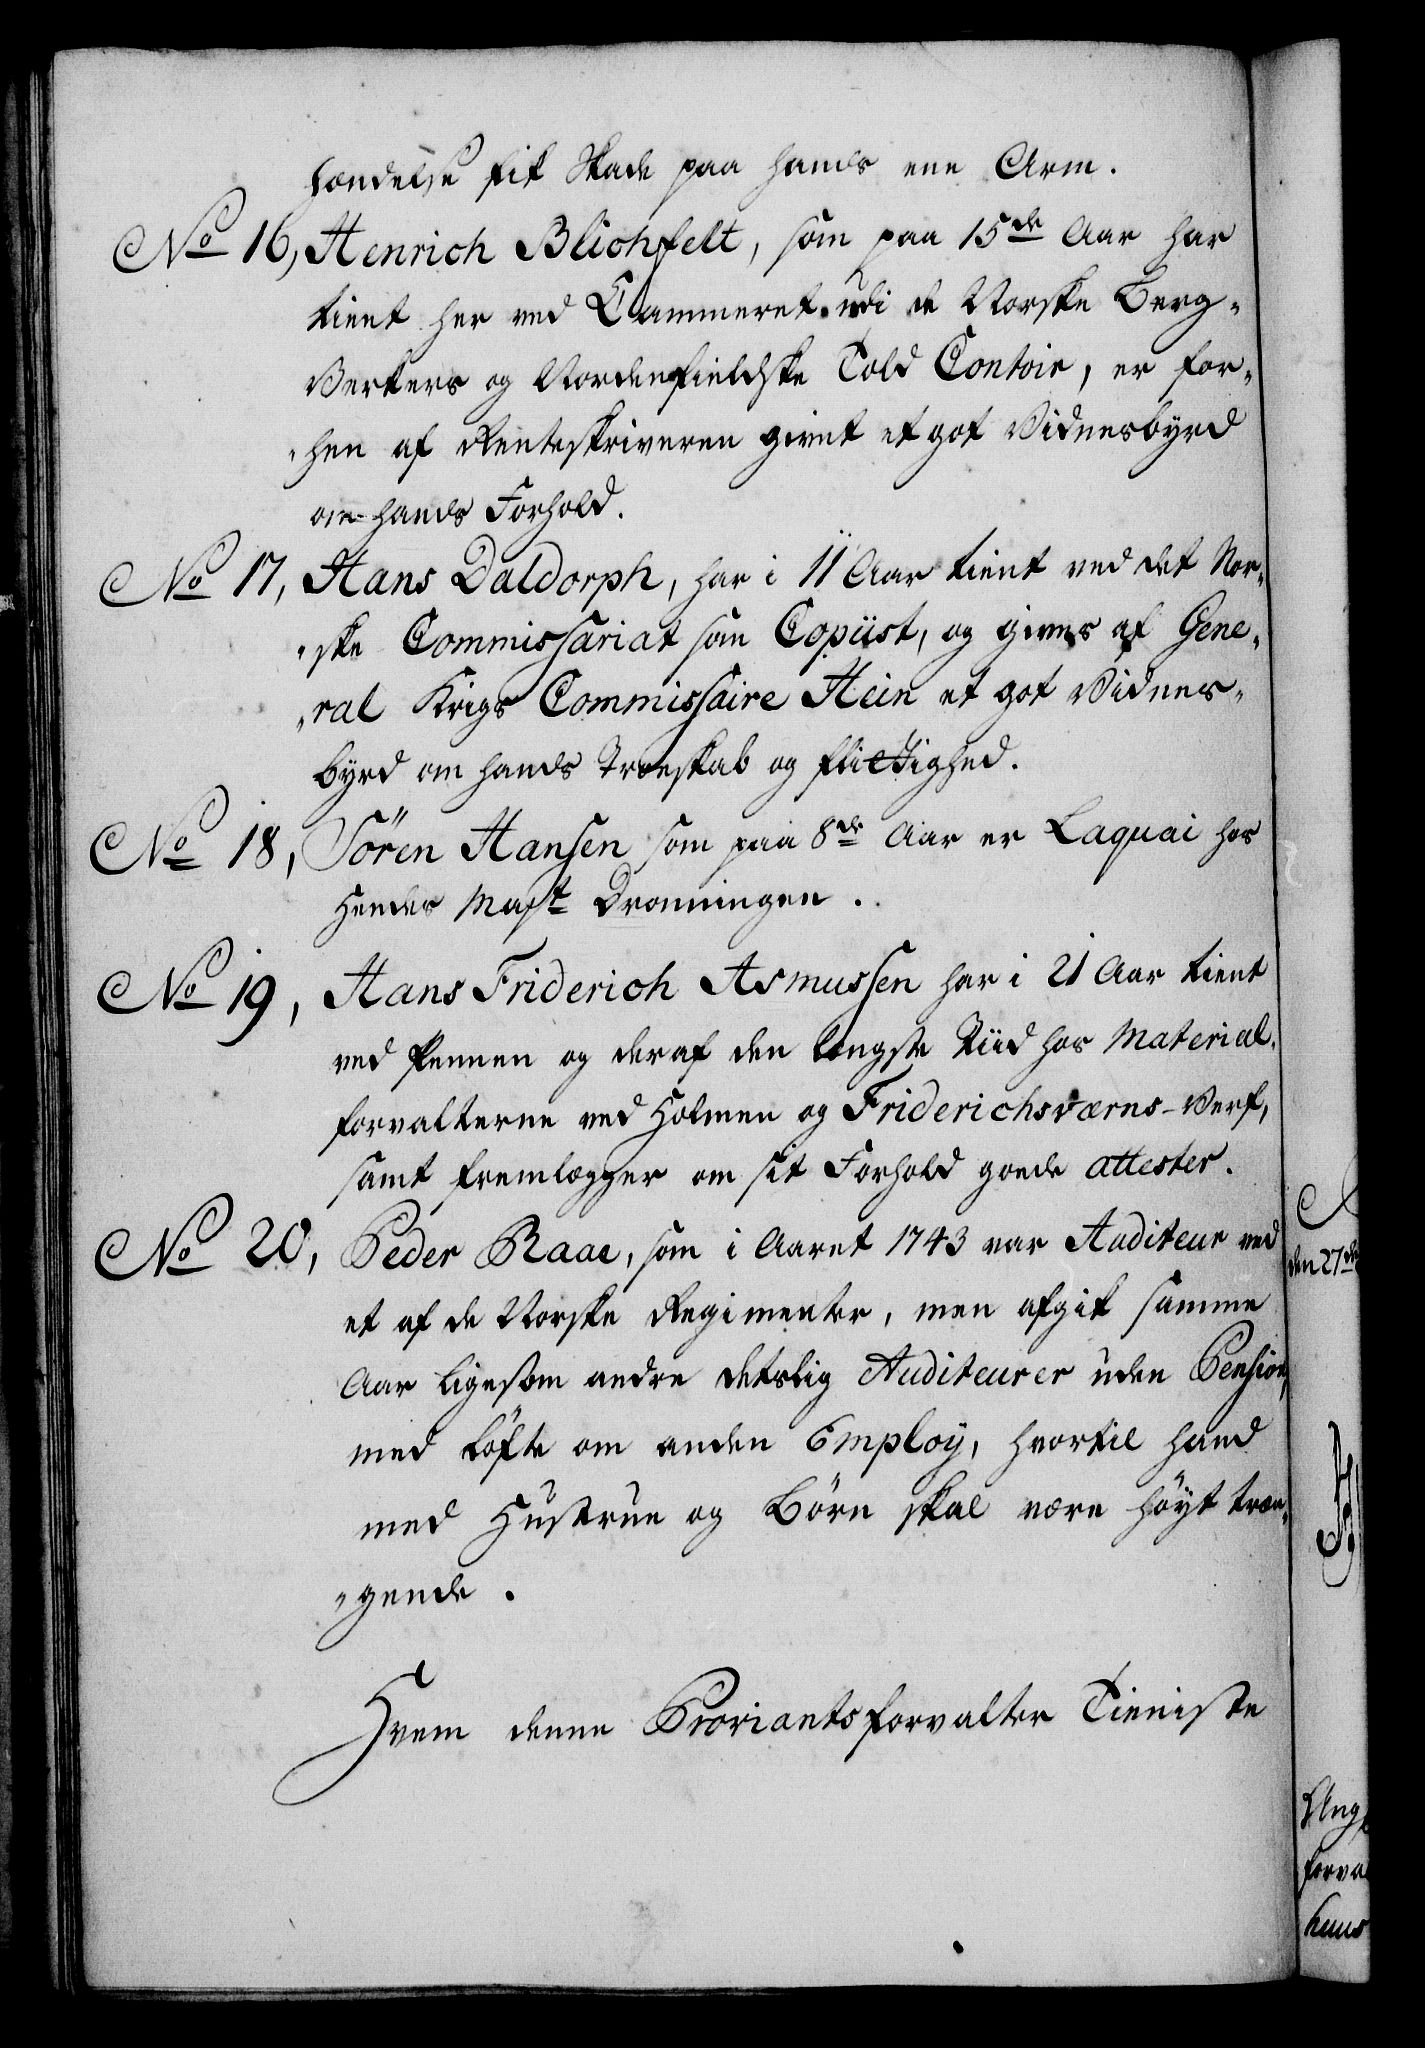 hændelse fik Skade paa hands ene Arm.
No 16, Henrich Blichfelt, som paa 15de Aar har
tient her ved Cammeret udi de Norske Berg-
Verkers og Nordenfieldske Told Contoir, er for-
hen af Renteskriveren givet et got Vidnesbyrd
om hands Forhold.
No 17, Hans Daldorph, har i 11 Aar tient ved det Nor-
ske Commissariat som Copiist, og gives af Gene-
ral Krigs Commissaire Hein et got Vidnes-
byrd om hands Troeskab og flittighed.
No 18, Sören Hansen som paa 8de Aar er Laquai hos
Hendes Mayt Dronningen.
No 19, Hans Friderich Asmussen har i 21 Aar tient
ved Pennen og deraf den længste Tiid hos Material-
forvalterne ved Holmen og Friderichsværns-Verf,
samt fremlægger om sit Forhold goede attester.
No 20, Peder Raae, som i Aaret 1743 var Auditeur ved
et af de Norske Regimenter, men afgik samme
Aar ligesom andre detslig Auditeurer uden Pension,
med löfte om anden Employ, hvortil hand
med Hustrue og Börn skal være höyt træn-
gende.
Hvem denne Proviantsforvalter Tieniste
den 27de
Ung
forva
huus